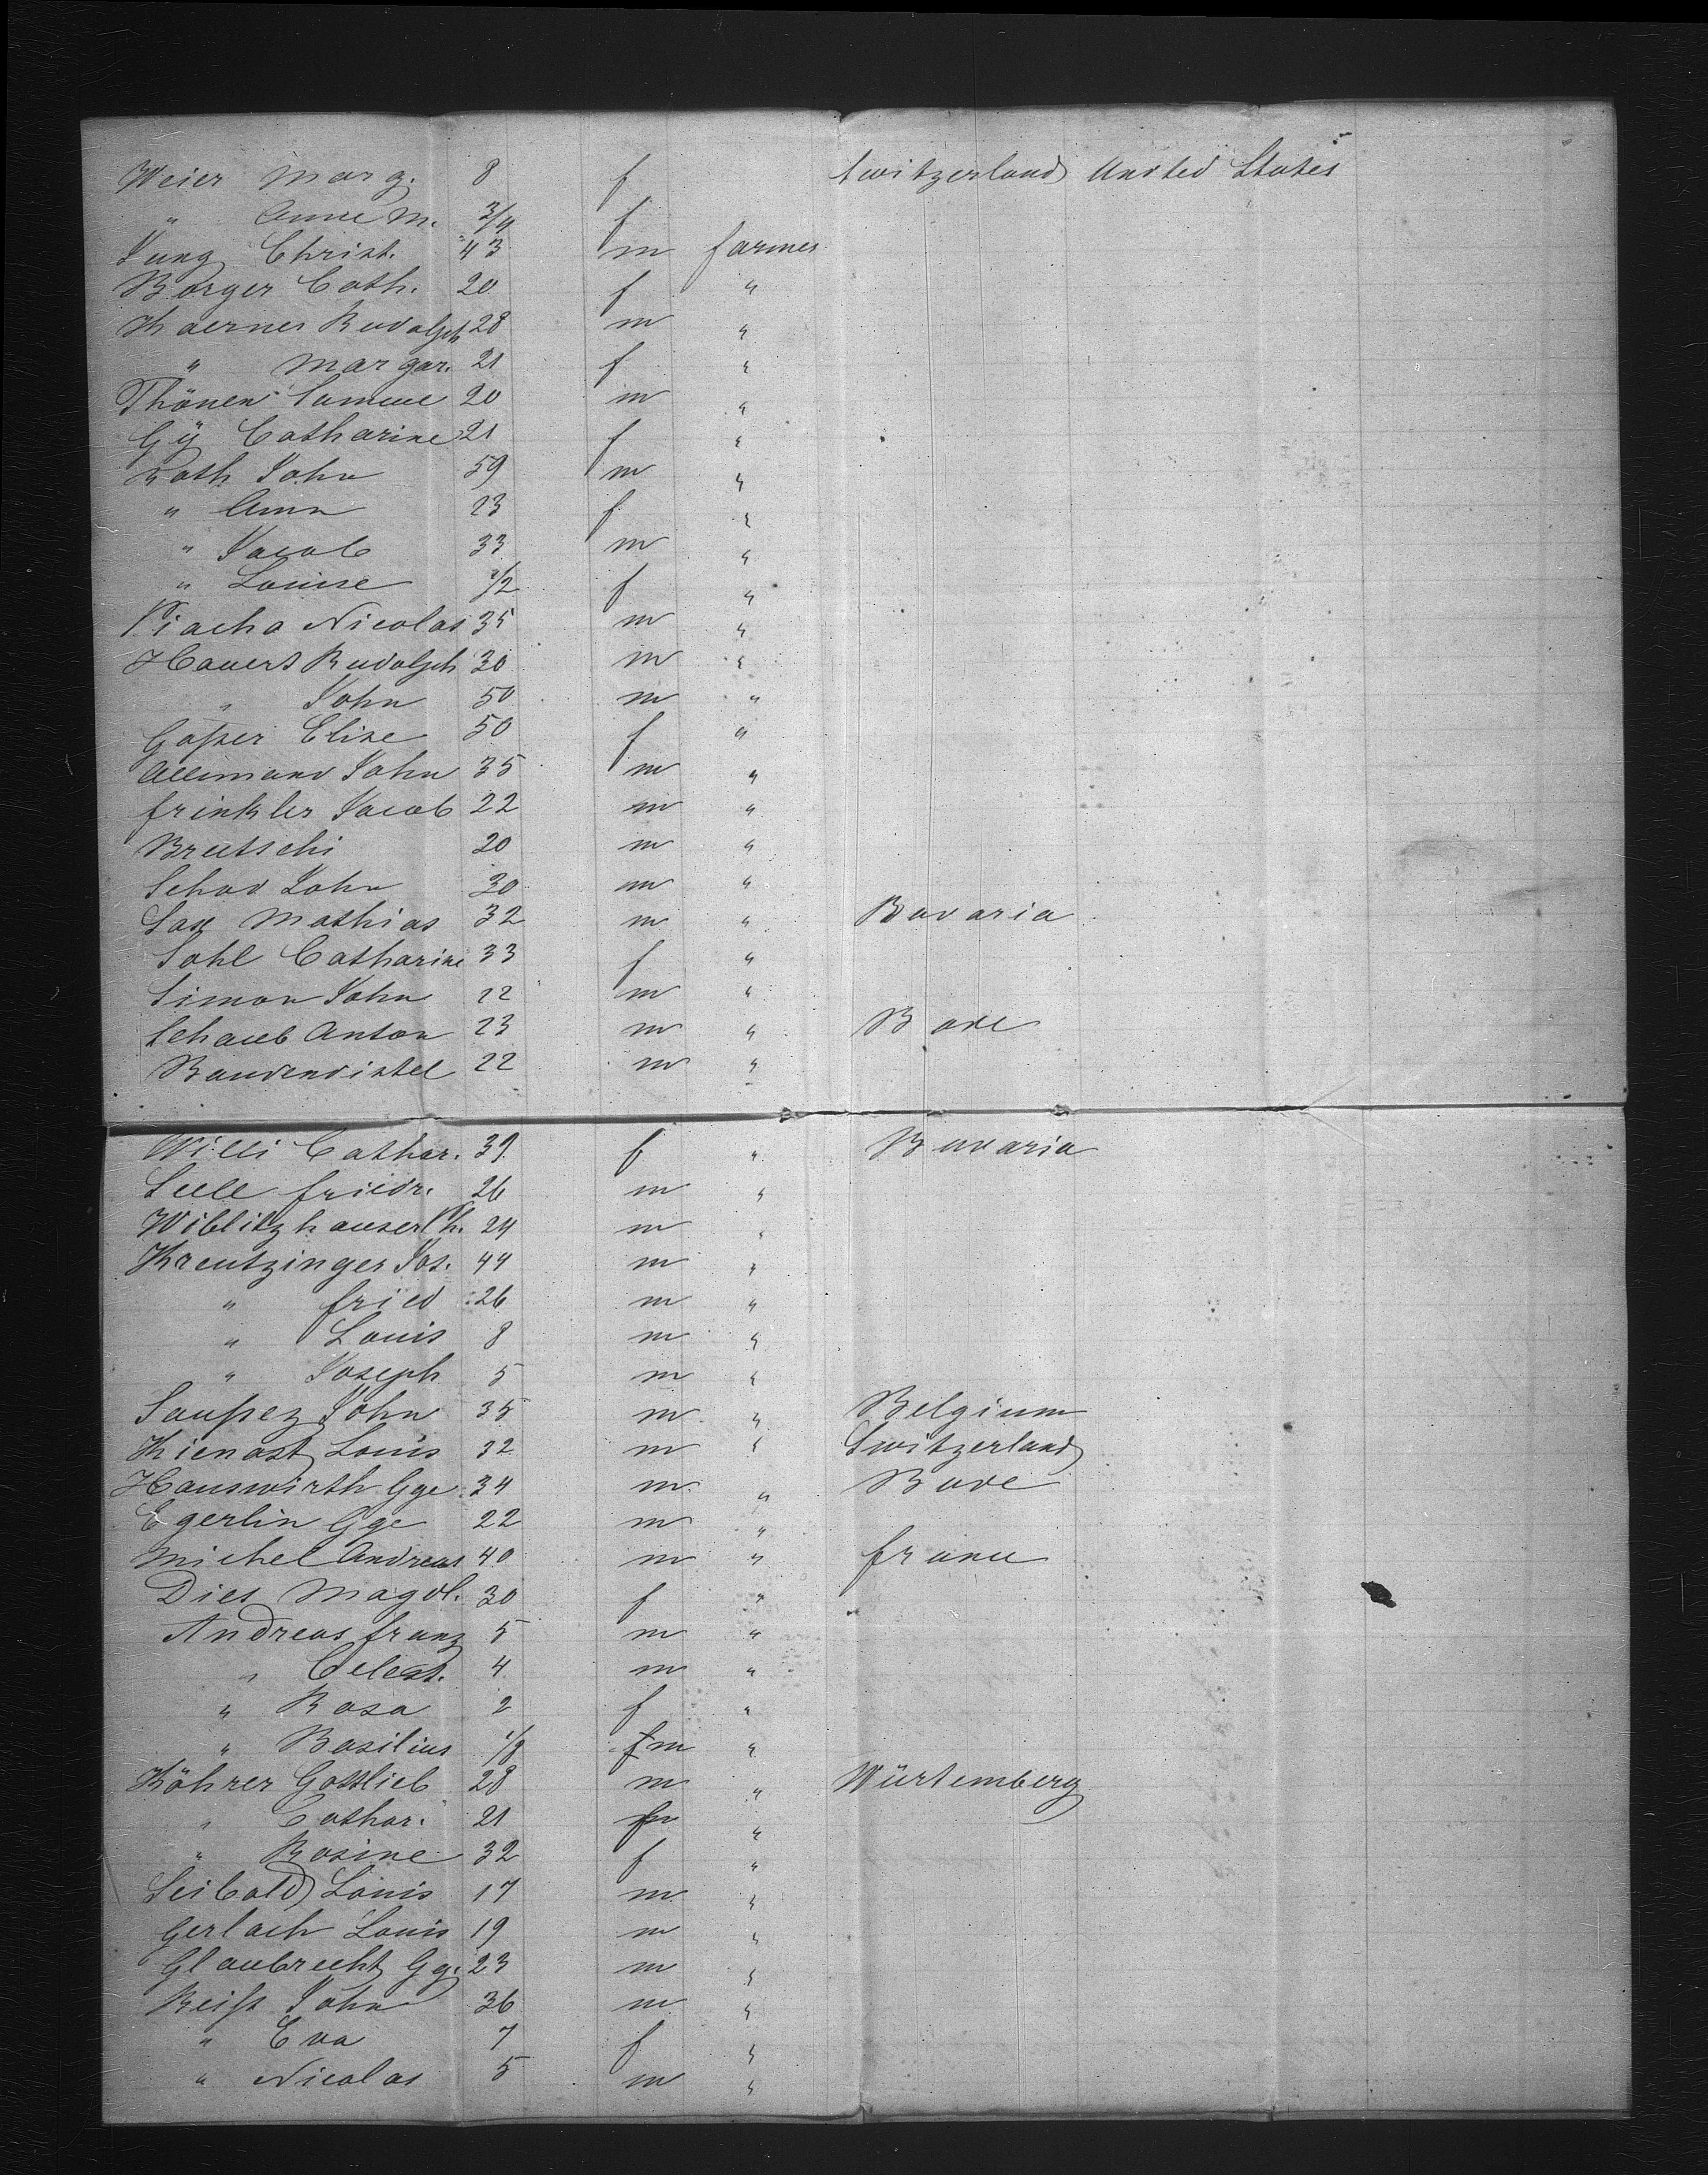 Weier Marg. 8 f Switzerland United States
" Anne M. 3/4 f
Jung Christ. 43 m farmer
Borger Cath. 20 f "
Kaerner Rudolph 28 m "
" Margar. 21 f "
Thönen Samuel 20 m "
Gÿ Catharine 21 f "
Roth John 59 m "
" Anna 23 f "
" Jacob 33 m "
" Louise 1/2 f "
Piacha Nicolas 35 m "
Hauert Rudolph 30 m "
" John 50 m "
Gaßer Elise 50 f "
Allimand John 35 m "
Frinkler Jacob 22 m "
Brutschi 20 m "
Schad John 30 m "
Sax Mathias 32 m " Bavaria
Sahl Catharine 33 f "
Simon John 22 m "
Schaub Anton 23 m " Bade
Baudendistel 22 m "
Willi Cathar. 39 f " Bavaria
Sell Friedr. 26 m "
Wiblitzhauser Ph. 24 m "
Kreutzinger Jos. 44 m "
" Fried 26 m "
" Louis 8 m "
" Joseph 5 m "
Saußez John 35 m " Belgium
Kienast Louis 32 m " Switzerland
Hauswirth Gge 34 m " Bade
Egerlin Gge 22 m "
Michel Andreas 40 m " France
Dies Magdl. 30 f "
Andreas Franz 5 m "
" Celest. 4 m "
" Rosa 2 f "
" Basilius 1/8 m "
Köhrer Gottlieb 28 m " Würtemberg
" Cathar. 21 f "
" Rosine 32 f "
Seibold Louis 17 m "
Gerlach Louis 19 m "
Glaubrecht Gg. 23 m "
Reiß John 36 m "
" Eva 7 f "
" Nicolas 5 m "